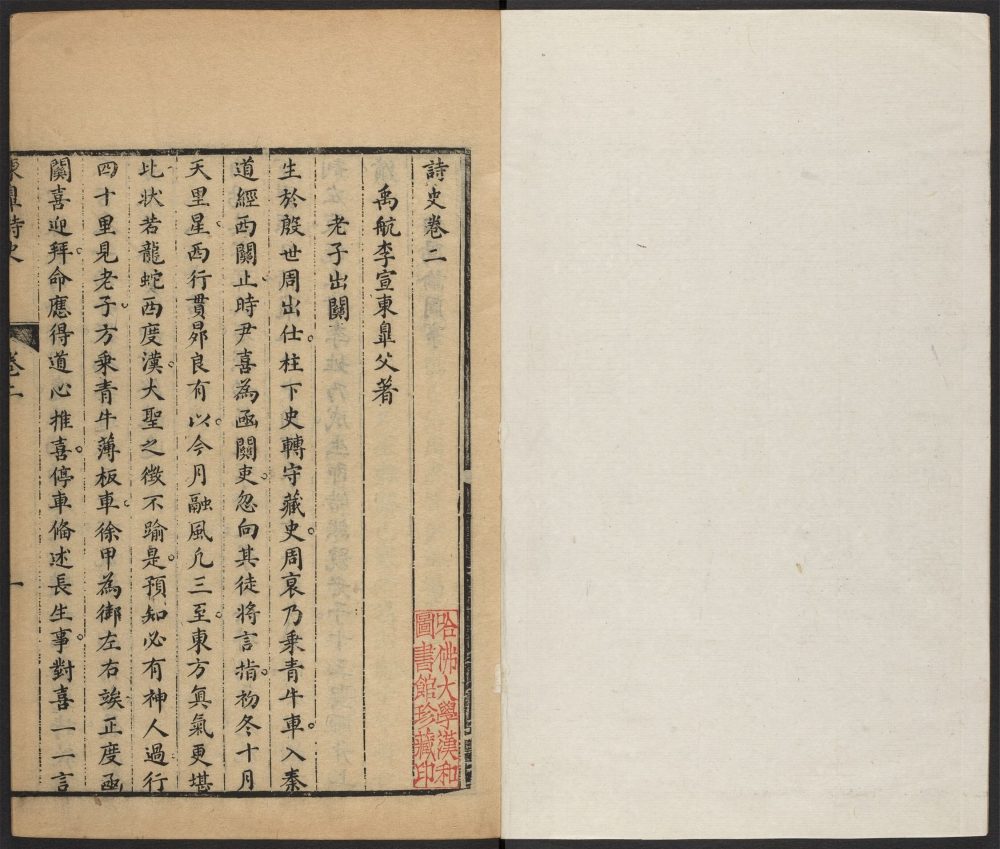 詩史卷二
禹航李宣東臯父著
老子出關
生於殷世周出仕。柱下史轉守藏史。周衰乃乘青牛車。入秦
道經西關止。時尹喜為函關吏。忽向其徒將言指。初冬十月
天里星。西行貫昴良有以。今月融風凡三至。東方眞氣更堪
比。狀若龍蛇西度漢。大聖之徴不踰是。預知必有神人過。行
四十里見老子。方乘青牛薄板車。徐甲為御左右竢。正度函
關喜迎拜。命應得道心推喜。停車俻述長生事。對喜一一言
東臯詩史
卷二
一
哈佛大學漢和
圖書館珍藏印